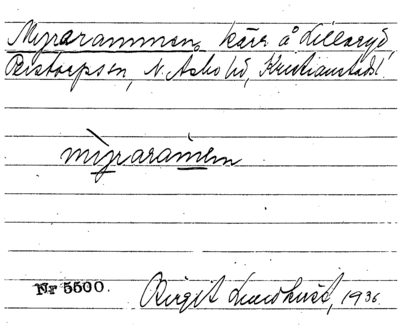 Myrarammen, kärr å Lillaryd,
Perstorps sn, N. Åsbo hd, Kristianstads l.
myraramen
Nr 5500. Birgit Lundkvist, 1936